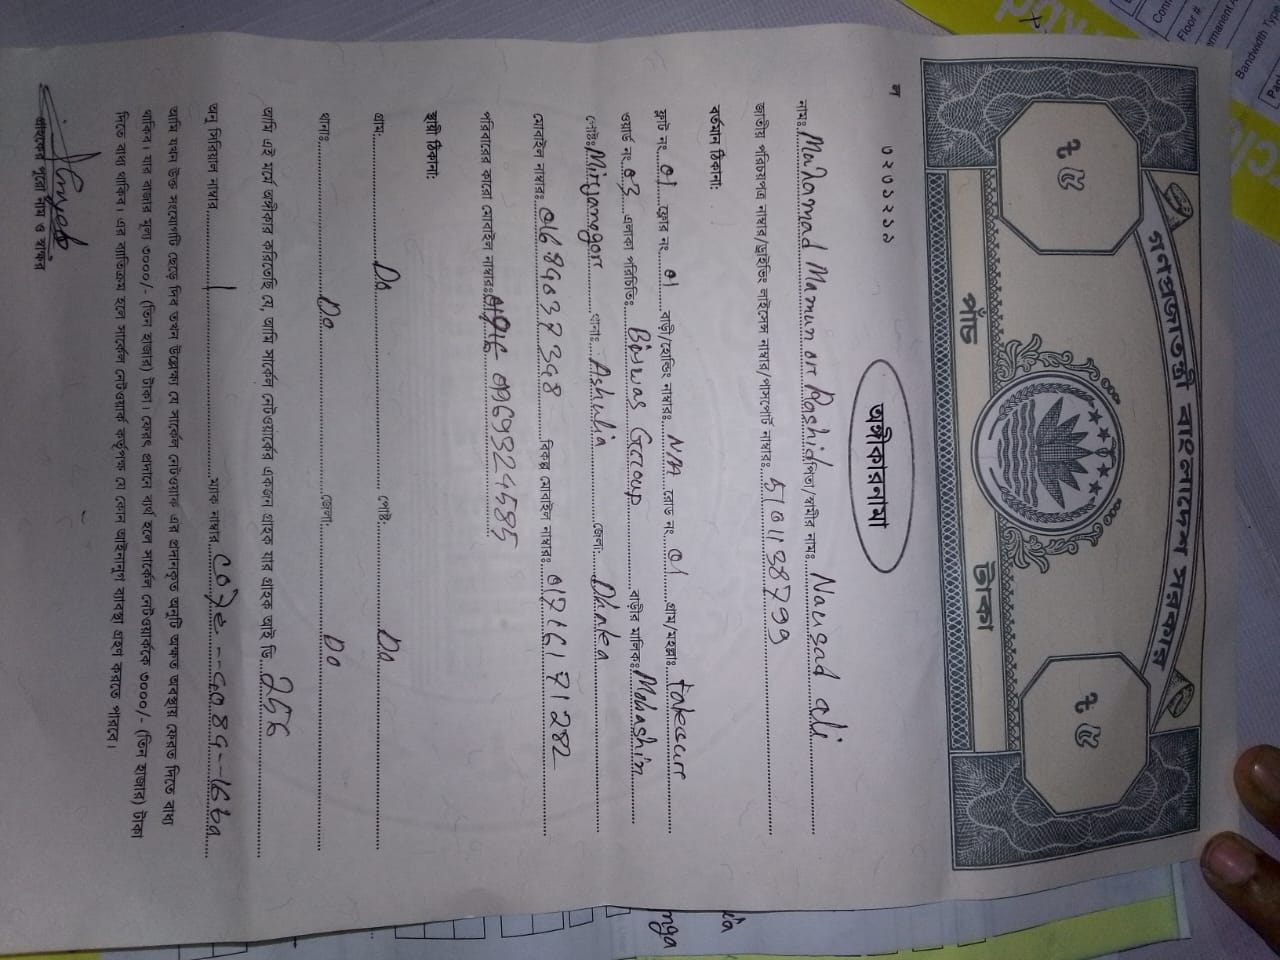 গনপ্রজাতন্ত্রী বাংলাদেশ সরকার
৳ ৫
৳ ৫
পাঁচ টাকা
ল ৭২৩১২১৯
অঙ্গীকারনামা
নামঃ Mahamad Mamun orr Rashid পিতা/স্বামীর নামঃ Nausad ali
জাতীয় পরিচয়পত্র নাম্বার/ড্রাইভিং লাইসেন্স নাম্বার/পাসপোর্ট নাম্বারঃ 5101138799
বর্তমান ঠিকানা:
ফ্লাট নং 01 ফ্লোর নং 01 বাড়ী/হোল্ডিং নাম্বারঃ N/A রোড নং 01 গ্রাম/মহল্লাঃ takeurr
ওয়ার্ড নং 03 এলাকা পরিচিতিঃ Biswas Grroup বাড়ীর মালিকঃ Mohashin
পোষ্টঃ Mirjanggorr থানাঃ Ashulia জেলা: Dhaka
মোবাইল নাম্বারঃ বিকল্প মোবাইল নাম্বারঃ 01716171282
পরিবারের কারো মোবাইল নাম্বারঃ 0969324585
স্থায়ী ঠিকানা:
গ্রাম: Do পোষ্ট: Do
থানাঃ Do জেলা: Do
আমি এই মর্মে অঙ্গীকার করিতেছি যে, আমি সার্কেল নেটওয়ার্কের একজন গ্রাহক যার গ্রাহক আই ডি 256
অনু সিরিয়াল নাম্বার / ম্যাক নাম্বার
আমি যখন উক্ত সংযোগটি ছেড়ে দিব তখন উল্লেক্ষ্য যে সার্কেল নেটওয়ার্ক এর প্রদানকৃত অনুটি অক্ষত অবস্থায় ফেরত দিতে বাধ্য
থাকিব। যার বাজার মূল্য ৩০০০/- (তিন হাজার) টাকা। ফেরৎ প্রদানে ব্যর্থ হলে সার্কেল নেটওয়ার্ককে ৩০০০/- (তিন হাজার) টাকা
দিতে বাধ্য থাকিব। এর ব্যতিক্রম হলে সার্কেল নেটওয়ার্ক কর্তৃপক্ষ যে কোন আইনানুগ ব্যাবস্থা গ্রহণ করতে পারবে।
গ্রাহকের পুরো নাম ও স্বাক্ষর
Floor #
Bandwidth Type
nga